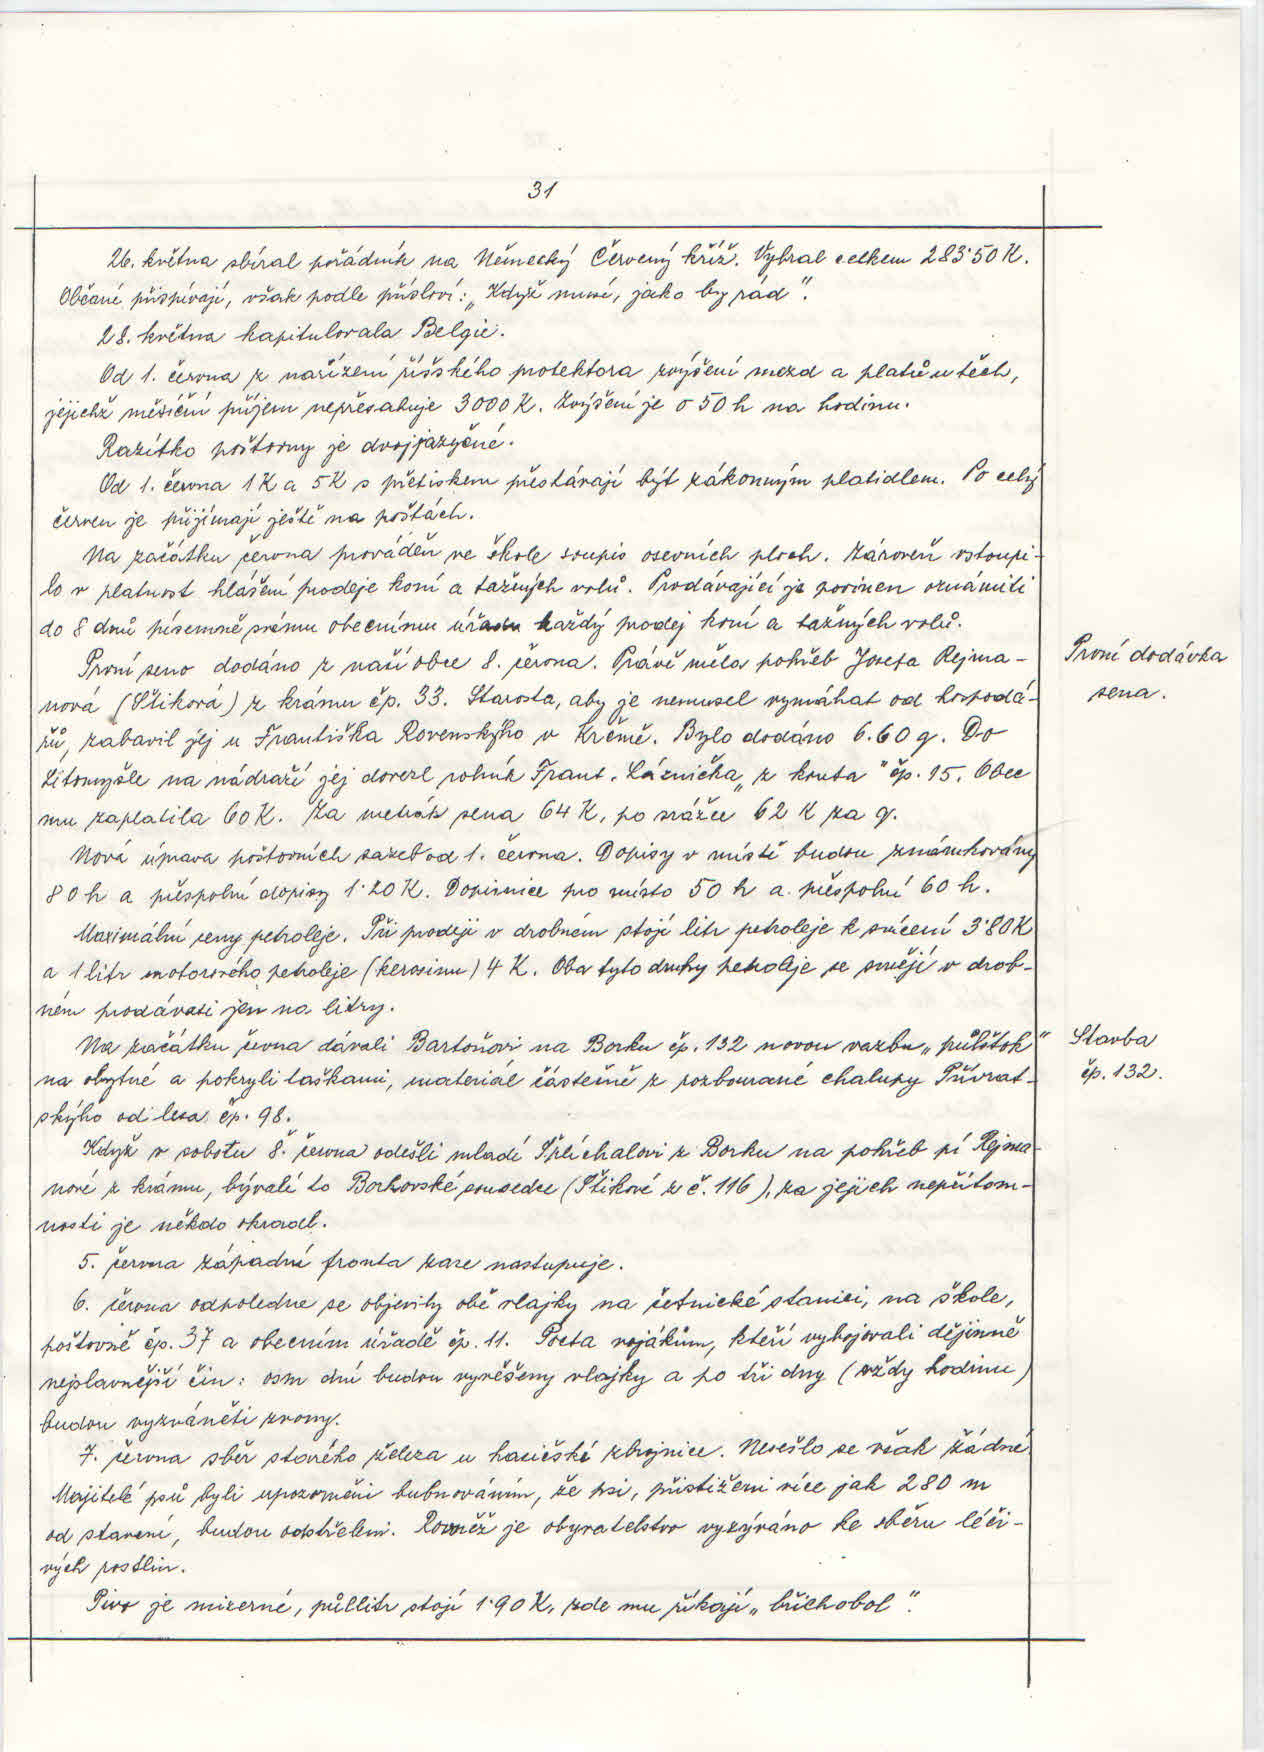 31
26. května sbíral pořádník na Německý Červený kříž. Vybral celkem 283·50 K.
Občané přispívají, však podle přísloví: „Když musí, jako by rád".
28. května kapitulovala Belgie.
Od 1. června z nařízení říšského protektora zvýšení mezd a platů u těch,
jejichž měsíční příjem nepřesahuje 3000 K. Zvýšení je o 50 h na hodinu.
Razítko poštovny je dvojjazyčné.
Od 1. června 1 K a 5 K s přetiskem přestávají být zákonným platidlem. Po celý
červen je přijímají ještě na poštách.
Na začátku června prováděn ve škole soupis osevních ploch. Zároveň vstoupi-
lo v platnost hlášení prodeje koní a tažných volů. Prodávající je povinen oznámiti
do 8 dnů písemně svému obecnímu úřadu každý prodej koní a tažných volů.
První seno dodáno z naší obce 8. června. Právě měla pohřeb Josefa Rejma-
nová (Štiková) z krámu čp. 33. Starosta, aby je nemusel vymáhat od hospodá-
řů, zabavil jej u Františka Rovenskýho v Krčmě. Bylo dodáno 6.60 q. Do
Litomyšle na nádraží jej dovezl rolník Frant. Láznička „z kouta" čp. 15. Obec
mu zaplatila 60 K. Za metrák sena 64 K, po srážce 62 K za q.
Nová úprava poštovních sazeb od 1. června. Dopisy v místě budou známkovány
80 h a přespolní dopisy 1·20 K. Dopisnice pro místo 50 h a přespolní 60 h.
Maximální ceny petroleje. Při prodeji v drobném stojí litr petroleje k svícení 3·80 K
a 1 litr motorového petroleje (kerosinu) 4 K. Oba tyto druhy petroleje se smějí v drob-
ném prodávati jen na litry.
Na začátku června dávali Bartoňovi na Borku čp. 132 novou vazbu „půlštok"
na obytné a pokryli taškami, materiál částečně z rozbourané chalupy Přívrat-
ského od lesa čp. 98.
Když v sobotu 8. června odešli mladí Šplíchalovi z Borku na pohřeb pí Rejma-
nové z krámu, bývalé to Borkovské sousedce (Štikové z č. 116), za jejich nepřítom-
nosti je někdo okradl.
5. června západní fronta zase nastupuje.
6. června odpoledne se objevily obě vlajky na četnické stanici, na škole,
poštovně čp. 37 a obecním úřadě čp. 11. Pocta vojákům, kteří vybojovali dějinně
nejslavnější čin: osm dní budou vyvěšeny vlajky a po tři dny (vždy hodinu)
budou vyzváněti zvony.
7. června sběr starého železa u hasičské zbrojnice. Nesešlo se však žádné.
Majitelé psů byli upozorněni bubnováním, že psi, přistiženi více jak 280 m
od stavení, budou odstřeleni. Rovněž je obyvatelstvo vyzýváno ke sběru léči-
vých rostlin.
Pivo je mizerné, půllitr stojí 1·90 K, zde mu říkají „břichobol".
První dodávka
sena.
Stavba
čp. 132.